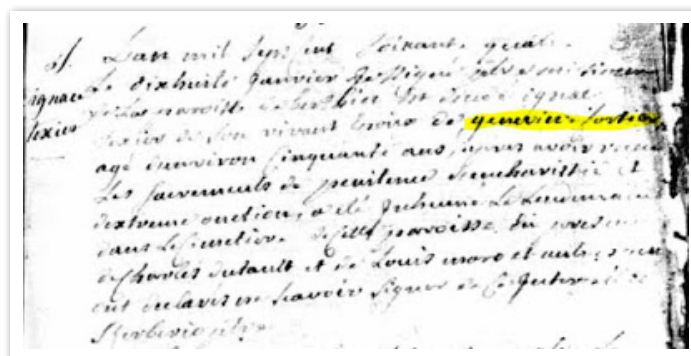 S.
L'an mil sept cent soixante quatre
ignace
Le dixhuite janvier
lexier
de la paroisse de berthier est décédé ignac
lexier de son vivant Epoux de genevieve fortier
agé denviron Cinquante ans, apres avoir recu
Les sacrements de penitence deucharistie et
dextreme onction, a été Inhumé Le Lendemain
dans Le Cimetiere de cette paroisse, En presence
de Charles dutault et de Louis moro et autres qui
ont declarés ne scavoir signer de ce Interpellés
Kerberio ptre